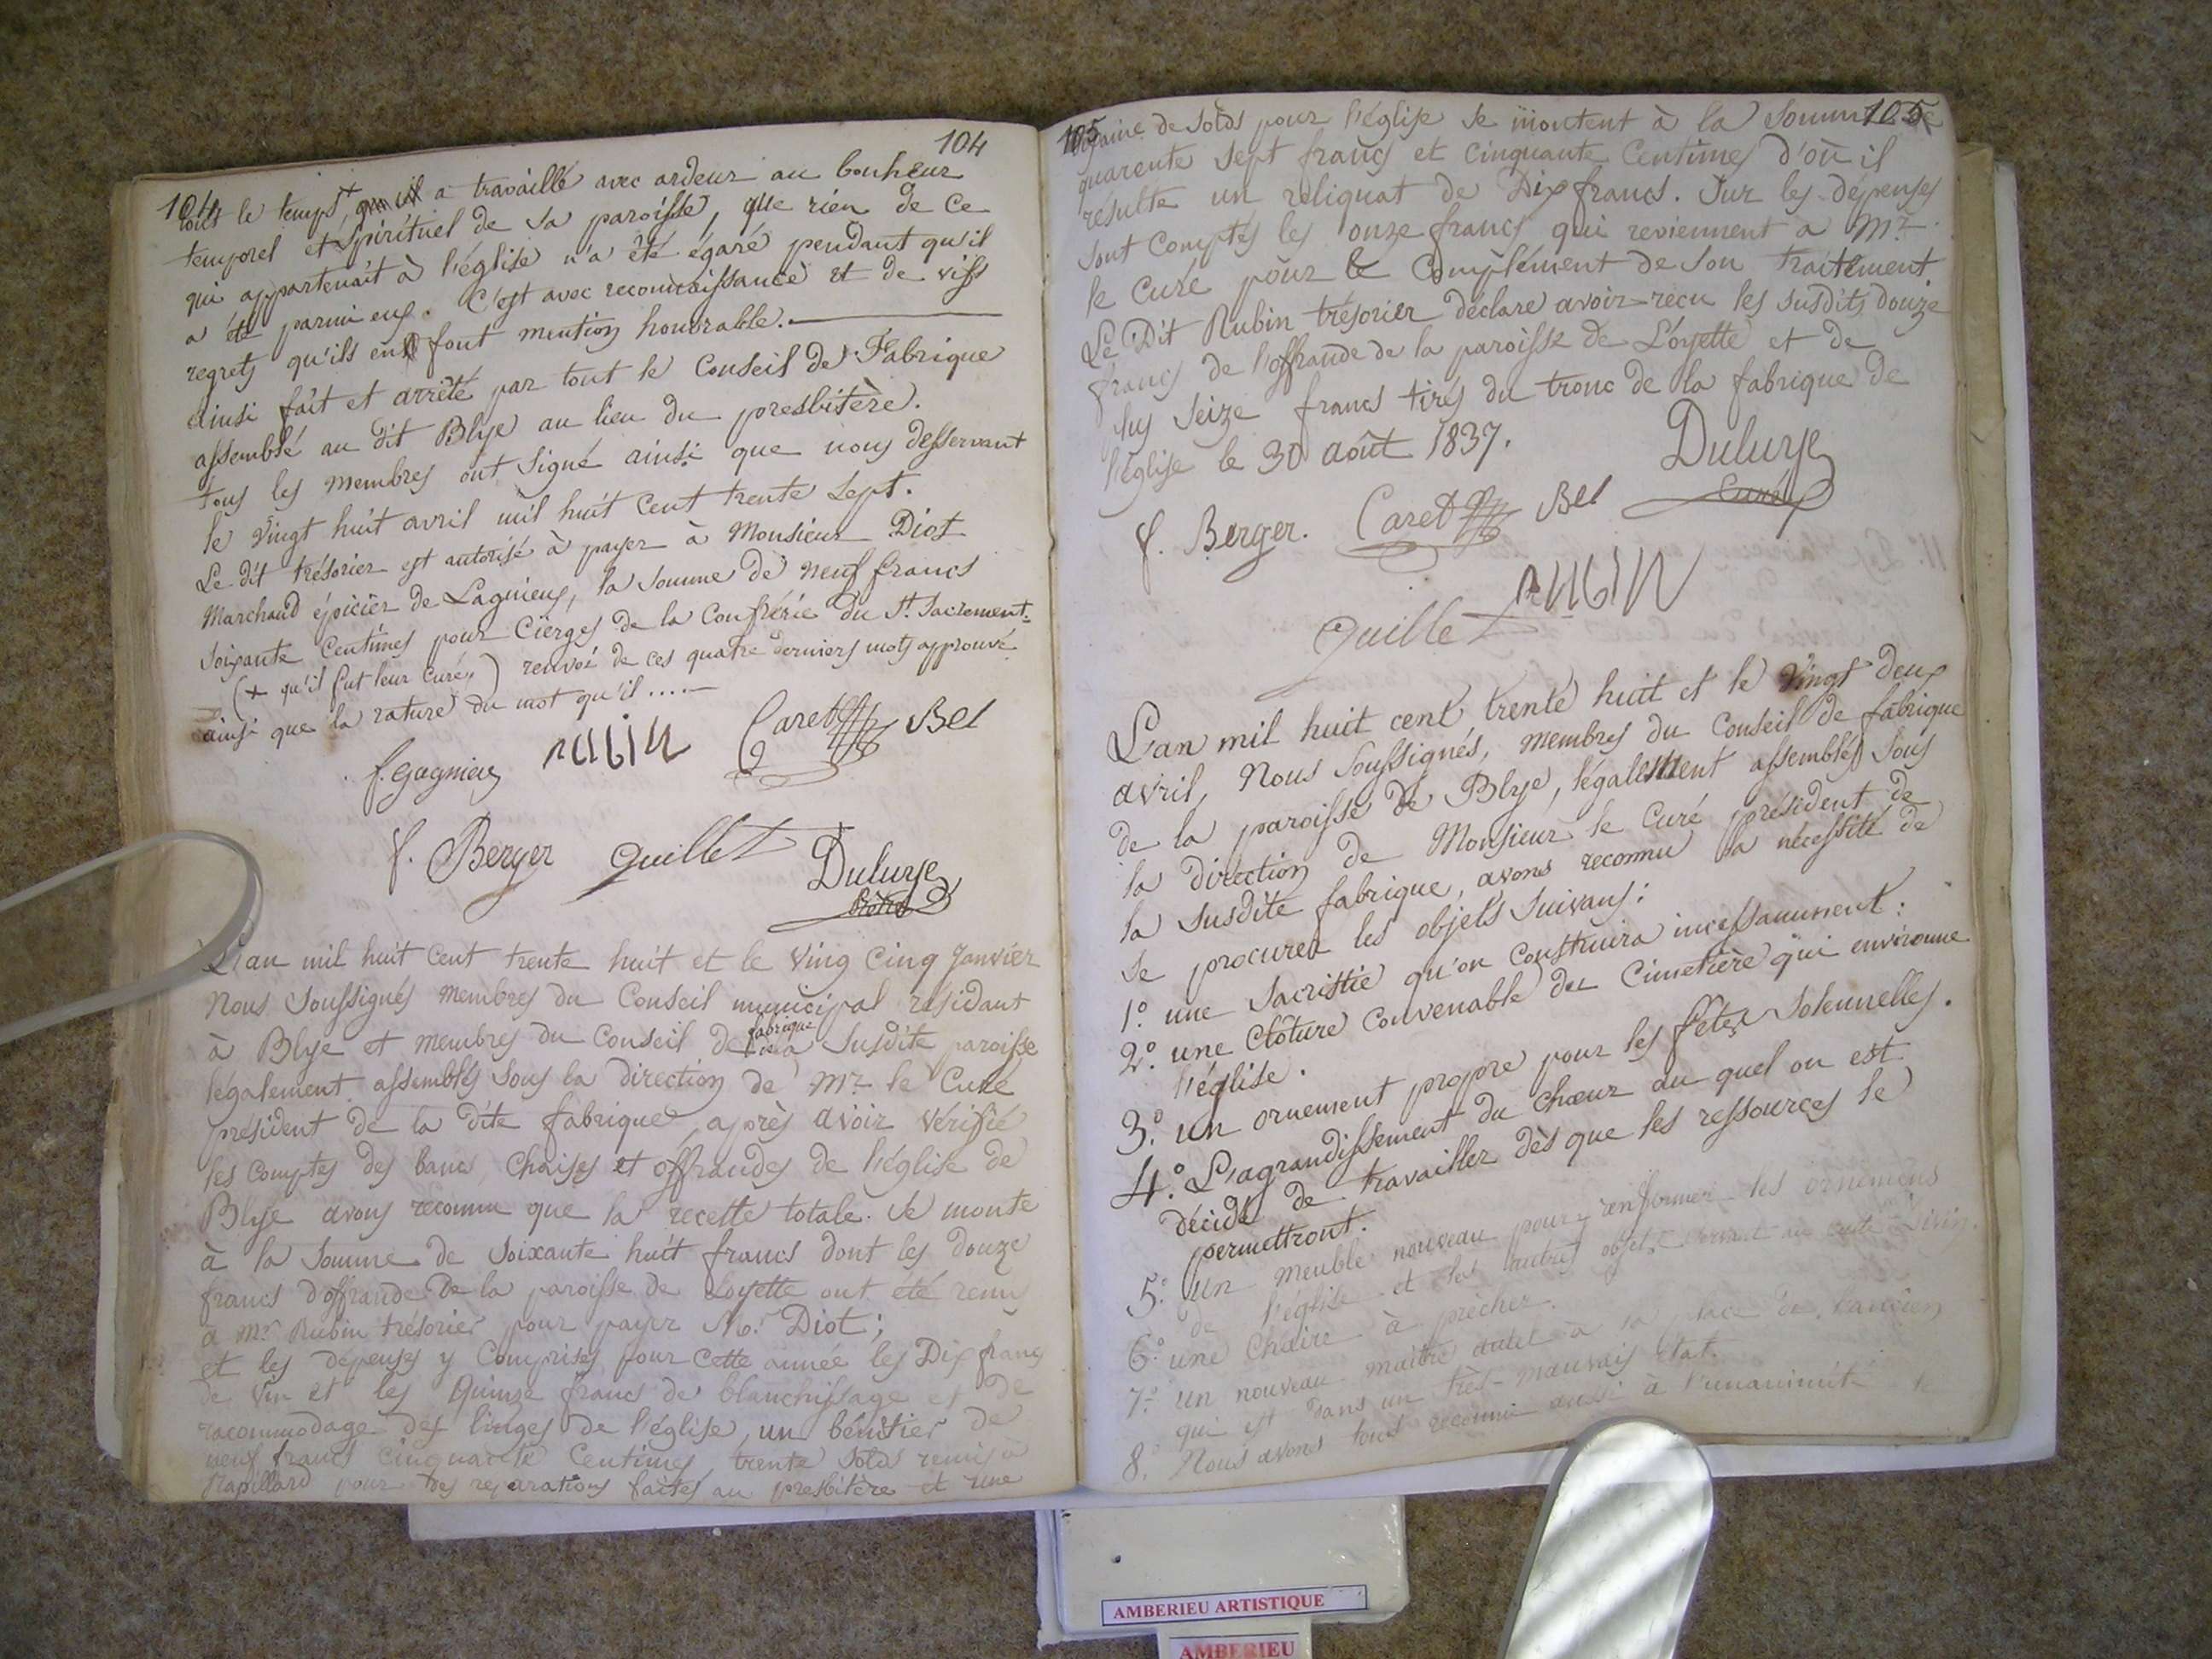 104
104
tout le temps + qu'il a travaillé avec ardeur au bonheur
temporel et spirituel de sa paroisse, que rien de ce
qui appartenait à l'église n'a été égaré pendant qu'il
a été parmi eux. C'est avec reconnaissance et de vifs
regrets qu'ils en font mention honorable.
ainsi fait et arrêté par tout le Conseil de Fabrique
assemblé au dit Blye au lieu du presbitère.
tous les membres ont signé ainsi que nous desservant
le vingt huit avril mil huit cent trente sept.
Le dit trésorier est autorisé à payer à Monsieur Diot
Marchand épicier de Lagnieux, la somme de neuf francs
soixante Centimes pour Cierges de la Confrérie du St. Sacrement.
(+ qu'il fut leur Curé,) renvoi de ces quatre derniers mots approuvé
ainsi que la rature du mot qu'il .....
f. gagnieux rubin Caret Bel
f. Berger Quillet Dulurye
Prêtre
L'an mil huit cent trente huit et le Ving Cinq Janvier
Nous Soussignés membres du Conseil municipal résidant
à Blye et membres du Conseil de fabrique de la susdite paroisse
légalement assemblés sous la direction de Mr. le Curé
président de la dite fabrique, après avoir vérifié
les comptes des bancs, chaises et offrandes de l'église de
Blye avons reconnu que la recette totale se monte
à la somme de soixante huit francs dont les douze
francs d'offrande de la paroisse de Loyette ont été remis
à Mr. Rubin trésorier pour payer Mr. Diot ;
et les dépenses y Comprises pour cette année les Dix francs
de vin et les Quinze francs de blanchissage et de
racommodage des linges de l'église, un bénitier de
neuf francs cinquante Centimes, trente sols remis à
Rapillard pour des réparations faites au presbitère et une
105
105
de sols pour l'église se montent à la somme de
quarente sept francs et cinquante Centimes d'où il
résulte un reliquat de Dix francs. Sur les dépenses
sont comptés les onze francs qui reviennent à Mr.
le Curé pour le Complément de son traitement
Le Dit Rubin trésorier déclare avoir reçu les susdits douze
francs de l'offrande de la paroisse de Loyette et de
plus seize francs tirés du tronc de la fabrique de
l'église le 30 août 1837.
Dulurye
Curé
f. Berger. Caret Bel
Quillet rubin
L'an mil huit cent trente huit et le Vingt deux
avril, Nous Soussignés, membres du Conseil de fabrique
de la paroisse de Blye, légalement assemblés sous
la direction de Monsieur le Curé président de
la susdite fabrique, avons reconnu la nécessité de
se procurer les objets suivans :
1.º une Sacristie qu'on construira incessamment :
2.º une Clôture convenable du Cimetière qui environne
l'église.
3.º un ornement propre pour les fêtes solennelles.
4.º L'agrandissement du Chœur au quel on est
décidé de travailler dès que les ressources le
permettront.
5.º Un meuble nouveau pour y renfermer les ornemens
de l'église et les autres objets servant au culte Divin.
6.º une Chaire à prêcher.
7.º un nouveau maître autel à la place de l'ancien
qui est dans un très-mauvais état.
8.º Nous avons tous reconnu aussi à l'unanimité le
AMBERIEU ARTISTIQUE
AMBERIEU